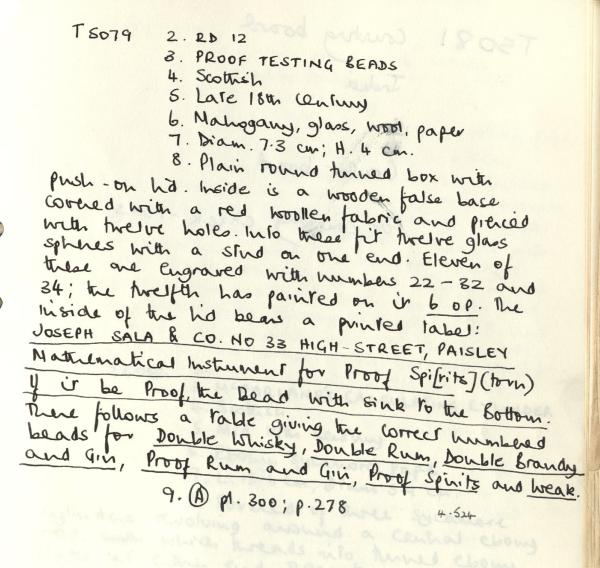 T5079 2. RD 12
3. PROOF TESTING BEADS
4. Scottish
5. Late 18th Century
6. Mahogany, glass, wool, paper
7. Diam. 7.3 cm; H. 4 cm.
8. Plain round turned box with
push-on lid. Inside is a wooden false base
covered with a red woollen fabric and pierced
with twelve holes. Into these fit twelve glass
spheres with a stud on one end. Eleven of
these are engraved with numbers 22-32 and
34; the twelfth has painted on it 6 OP. The
inside of the lid bears a printed label:
JOSEPH SALA & CO. NO 33 HIGH-STREET, PAISLEY
Mathematical Instrument for Proof Spi[rits] (torn)
If it be Proof, the Bead with sink to the Bottom.
There follows a table giving the correct numbered
beads for Double Whisky, Double Rum, Double Brandy
and Gin, Proof Rum and Gin, Proof Spirits and Weak.
9. A pl. 300; p. 278
4.524